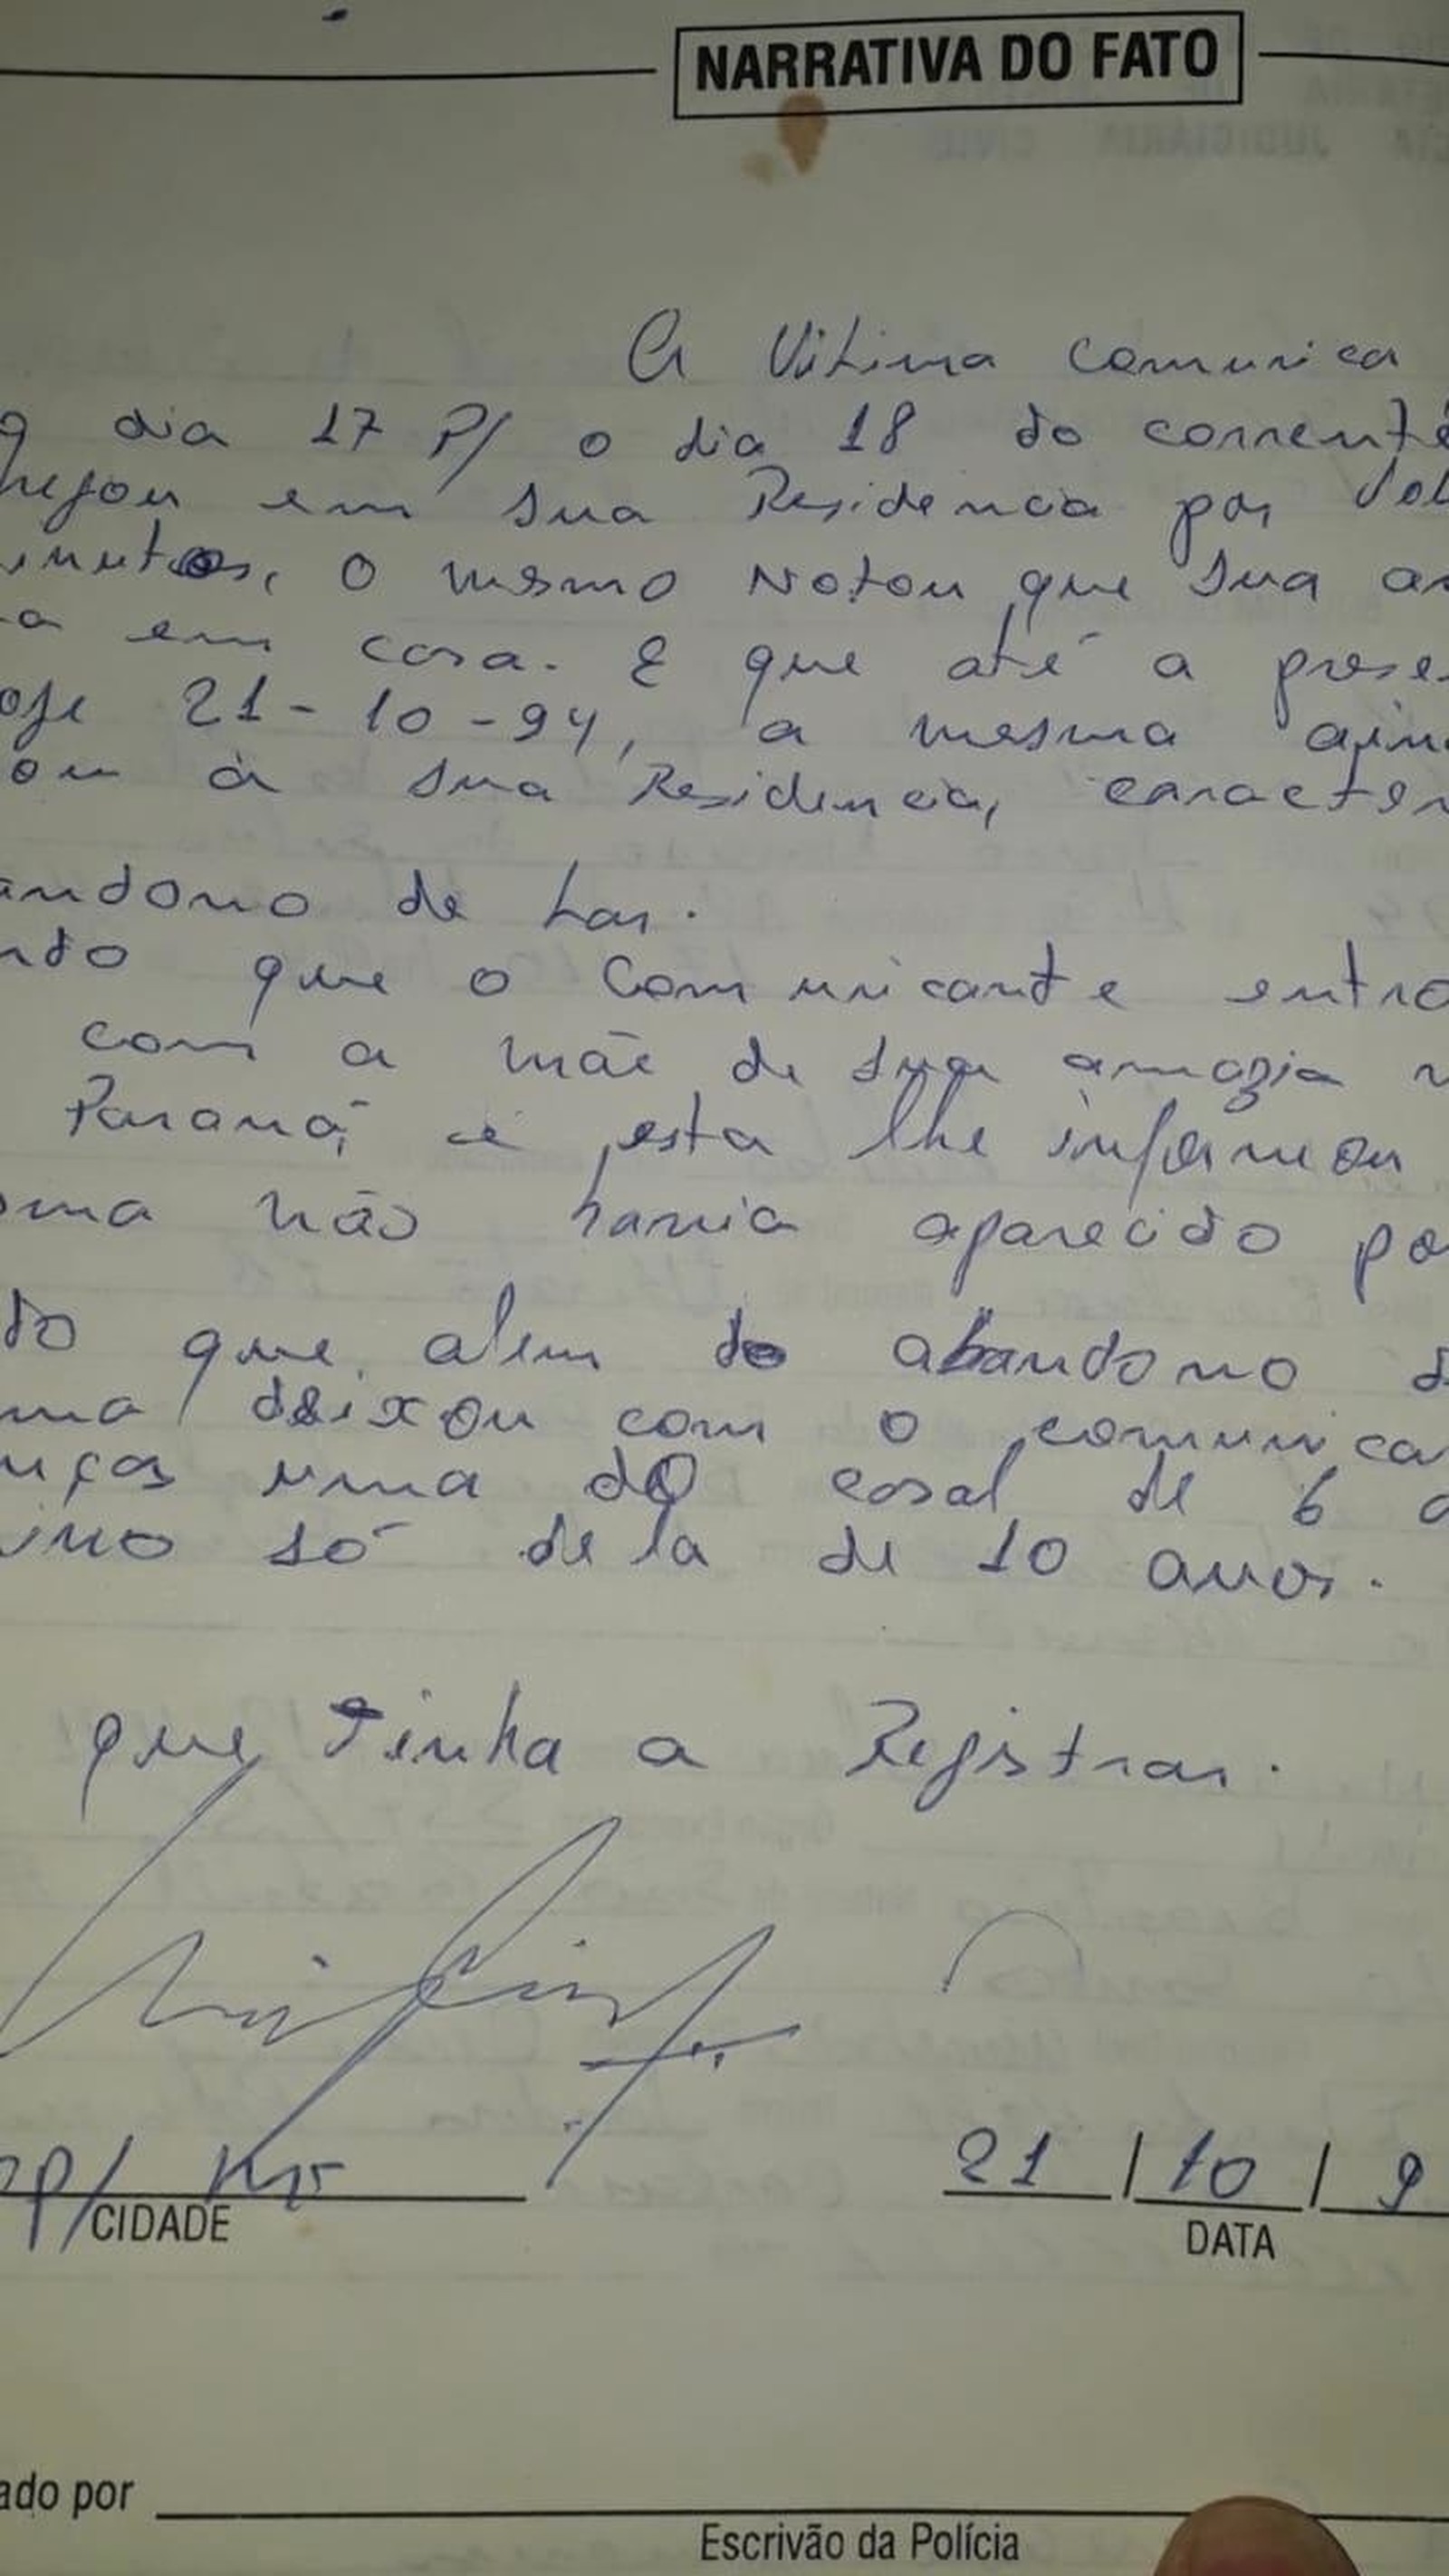 NARRATIVA DO FATO
A Vitima comunica
q dia 17 P/ o dia 18 do corrente
hegou em sua Residencia por Vol
inutos, o mesmo Notou que sua am
a em casa. E que até a prese
oje 21-10-94, a mesma ain
ou à sua Residencia, caracter
andono de Lar.
ndo que o Comunicante entro
com a mãe de sua amazia n
Paraná, e esta lhe informou
sma não havia aparecido po
do que alem do abandono d
ma deixou com o comunica
nças uma do casal de 6 a
ino só dela de 10 anos.
que tinha a Registrar.
op/ MT
21 / 10 / 9
CIDADE
DATA
ado por
Escrivão da Polícia